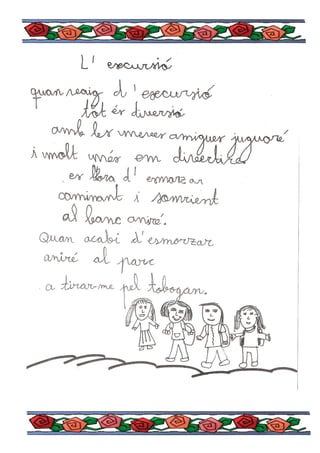 L' excursió
quan vaig d' excursió
tot és diversió
amb les meves amigues jugaré
i molt més em divertiré
es hora d' esmorzar
caminant i somrient
al banc aniré.
Quan acabi d'esmorzar
aniré al parc
a tirar-me pel tobogan.